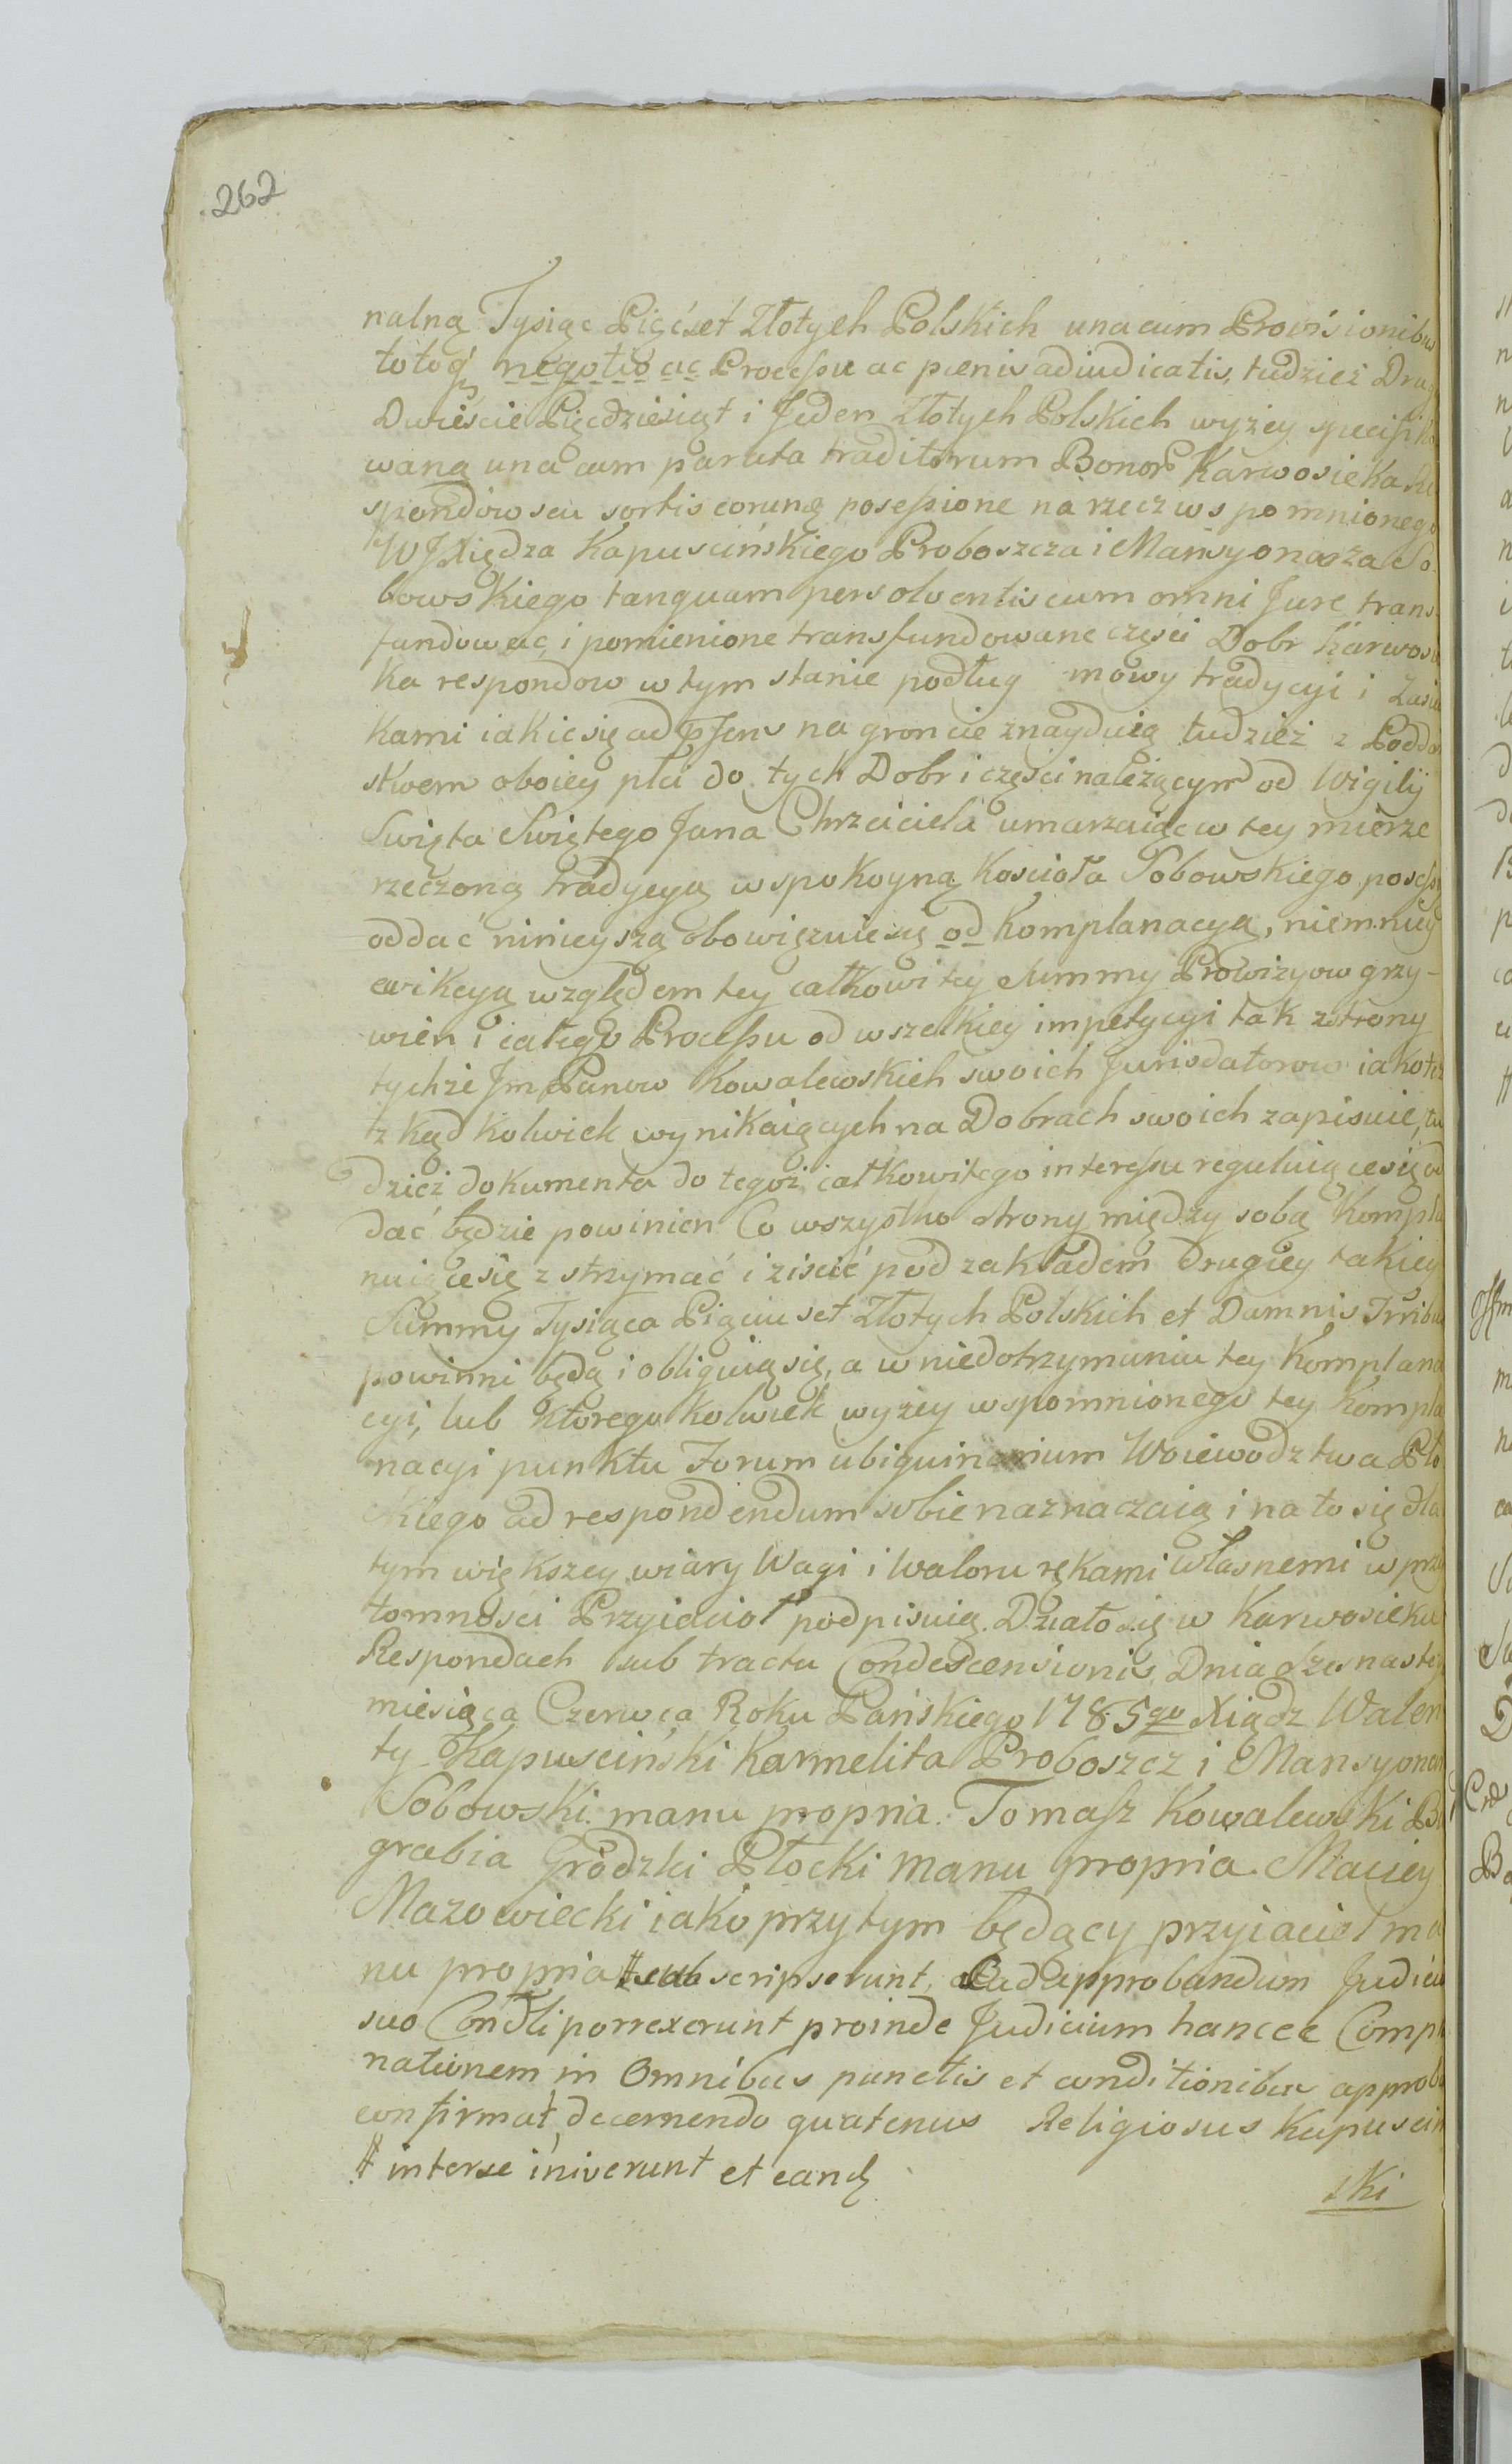 262
nalną Tysiąc Pięćset Złotych Polskich una cum Provisionibus
totoq negotio ac Processu ac pœnis adiudicatis, tudzież Drug
Dwieście Pięcdziesiąt i Jeden Złotych Polskich wyżey specifiko
waną una cum parata traditorum Bonor Karwosieka Re
spondow seu sortis eorung posessione na rzecz wspomnionego
WJ Xiędza Kapuscińskiego Proboszcza i Mansyonarza So-
bowskiego tanquam persolventis cum omni Jure trans-
fundować, i pomienione transfundowane części Dobr Karwosie
ka respondow w tym stanie podług mowy tradycyi i Zasie
kami iakie się ad pſens na groncie znayduią tudzież z Podda
stwem oboiey płci do tych Dobr i części należącym od Wigilij
Swięta Swiętego Jana Chrzciciela umarzaiąc w tey mierze
rzeczoną tradycyą w spokoyną Kościoła Sobowskiego posesso
oddać ninieyszą obowięzuie się od Komplanacyą, niemniey
ewikcyą względem tey całkowitey Summy Prowizyow grzy-
wien i całego Processu od wszelkiey impetycyi tak z strony
tychże Jm Panow Kowalewskich swoich Jurisdatorow iakotez
z kąd kolwiek wynikaiących na Dobrach swoich zapisuie, tu
dzież dokumenta do tegoż całkowitego interessu reguluiące się od
dać będzie powinien Co wszystko strony między sobą Kompla
nuiące się z strzymać i ziscić pod zakładem drugiey takiey
Summy Tysiąca Pięciuset Złotych Polskich et Damnis Trribus
powinni będą i obliguią się, a w niedotrzymaniu tey Komplana
cyi, lub ktoregokolwiek wyżey wspomnionego tey Kompla
nacyi punktu Forum ubiquinarium Woiewodztwa Pło
ckiego ad respondendum sobie naznaczaią i na to się dla
tym większey wiary Wagi i Waloru rękami własnemi w przy
tomności Przyiacioł podpisuią. Działo się w Karwosieku
Respondach sub tractu Condescensionis Dnia Szesnaste
miesiąca Czerwca Roku Pańskiego 1785go Xiądz Walen
ty Kapusciński Karmelita Proboszcz i Mansyonar
Sobowski manu propria. Tomasz Kowalewski Bu
grabia Grodzki Płocki manu propria. Maciey
Mazowiecki iako przytym będący przyiaciel ma
nu propria # subscripserunt, ad approbandum Judicio
suo Condli porrexerunt proinde Judicium hancce Compla
nationem in Omnibus punctis et conditionibus approba
confirmat, decernendo quatenus Religiosus Kapuscin
# inter se iniverunt et eand
ski